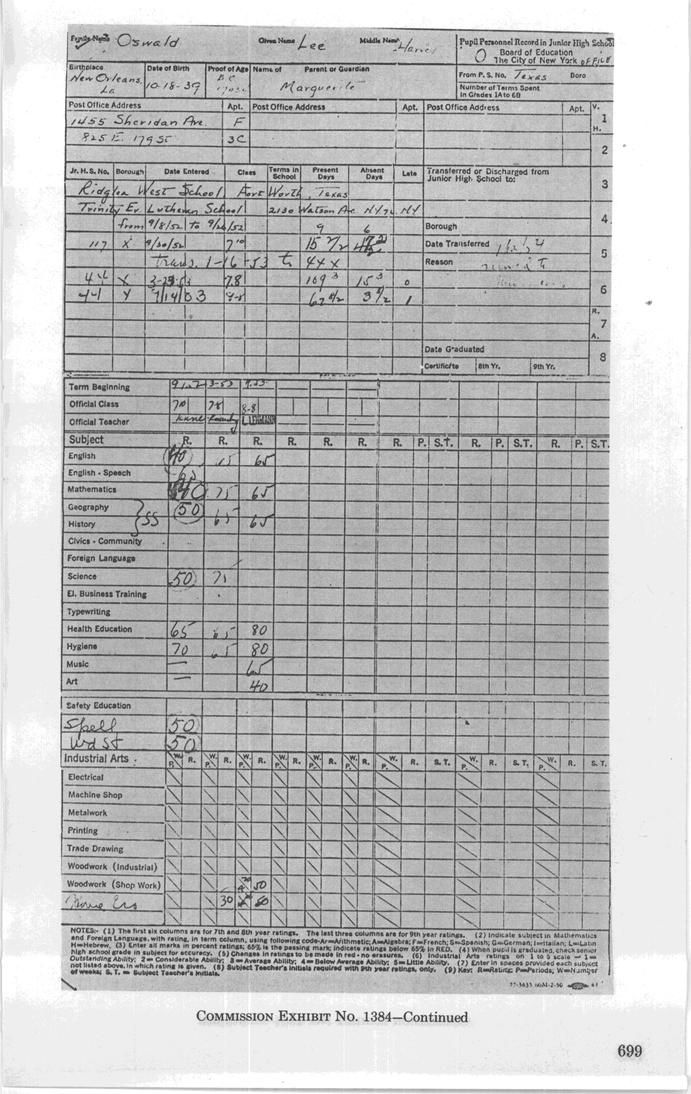 Family Name Oswald Given Name Lee Middle Name Harvey Pupil Personnel Record in Junior High School
Board of Education
The City of New York
Birthplace Date of Birth Proof of Age Names of Parent or Guardian From P. S. No. Texas Boro
New Orleans, La 10-18-39 B C Marguerite Number of Terms Spent in Grades 1A to 6B
Post Office Address Apt. Post Office Address Apt. Post Office Address Apt. V.
1455 Sheridan Ave. F 1
H.
825 E. 179 St 3C 2
Jr. H. S. No. Borough Date Entered Class Terms in School Present Days Absent Days Late Transferred or Discharged from Junior High School to:
Ridglea West School Fort Worth, Texas 3
Trinity Ev. Lutheran School 2130 Watson Ave. NY 72, NY 4
from 9/8/52 to 9/26/52 9 6 Borough
117 X 9/30/52 7 15 7/2 Date Transferred 5
trans. 1-16-53 to 44X Reason moved to
44 X 3-23-53 78 109 3 15 3 0 6
44 9/14/53 3 1/2 1
R.
7
A.
Date Graduated 8
Certificate 8th Yr. 9th Yr.
Term Beginning 3-53
Official Class 78 8-8
Official Teacher
Subject R. R. R. R. R. R. R. P. S.T. R. P. S.T. R. P. S.T.
English 65
English - Speech 65
Mathematics 75 65
Geography 50
SS
History 65 65
Civics - Community
Foreign Language
Science 50
El. Business Training
Typewriting
Health Education 65 65 80
Hygiene 70 65 80
Music — 65
Art — 40
Safety Education
Spell 50
Wd St 50
Industrial Arts W. P. R. W. P. R. W. P. R. W. P. R. W. P. R. W. P. R. W. P. R. S. T. W. P. R. S. T. W. P. R. S. T.
Electrical
Machine Shop
Metalwork
Printing
Trade Drawing
Woodwork (Industrial)
Woodwork (Shop Work) 50
Home Ec 30 60
NOTES:- (1) The first six columns are for 7th and 8th year ratings. The last three columns are for 9th year ratings. (2) Indicate subject in Mathematics
and Foreign Language, with rating, in term column, using following code-Ar=Arithmetic; A=Algebra; F=French; S=Spanish; G=German; I=Italian; L=Latin
H=Hebrew. (3) Enter all marks in percent ratings; 65% is the passing mark; indicate ratings below 65% in RED. (4) When pupil is graduated, check senior
high school grade in subject for accuracy. (5) Changes in ratings to be made in red - no erasures. (6) Industrial Arts ratings on 1 to 5 scale - 1=
Outstanding Ability; 2= Considerable Ability; 3=Average Ability; 4=Below Average Ability; 5=Little Ability. (7) Enter in spaces provided each subject
not listed above, in which rating is given. (8) Subject Teacher's initials required with 9th year ratings, only. (9) Key: R=Rating; P=Periods; W=Number
of weeks; S. T. = Subject Teacher's Initials.
COMMISSION EXHIBIT No. 1384—Continued
699